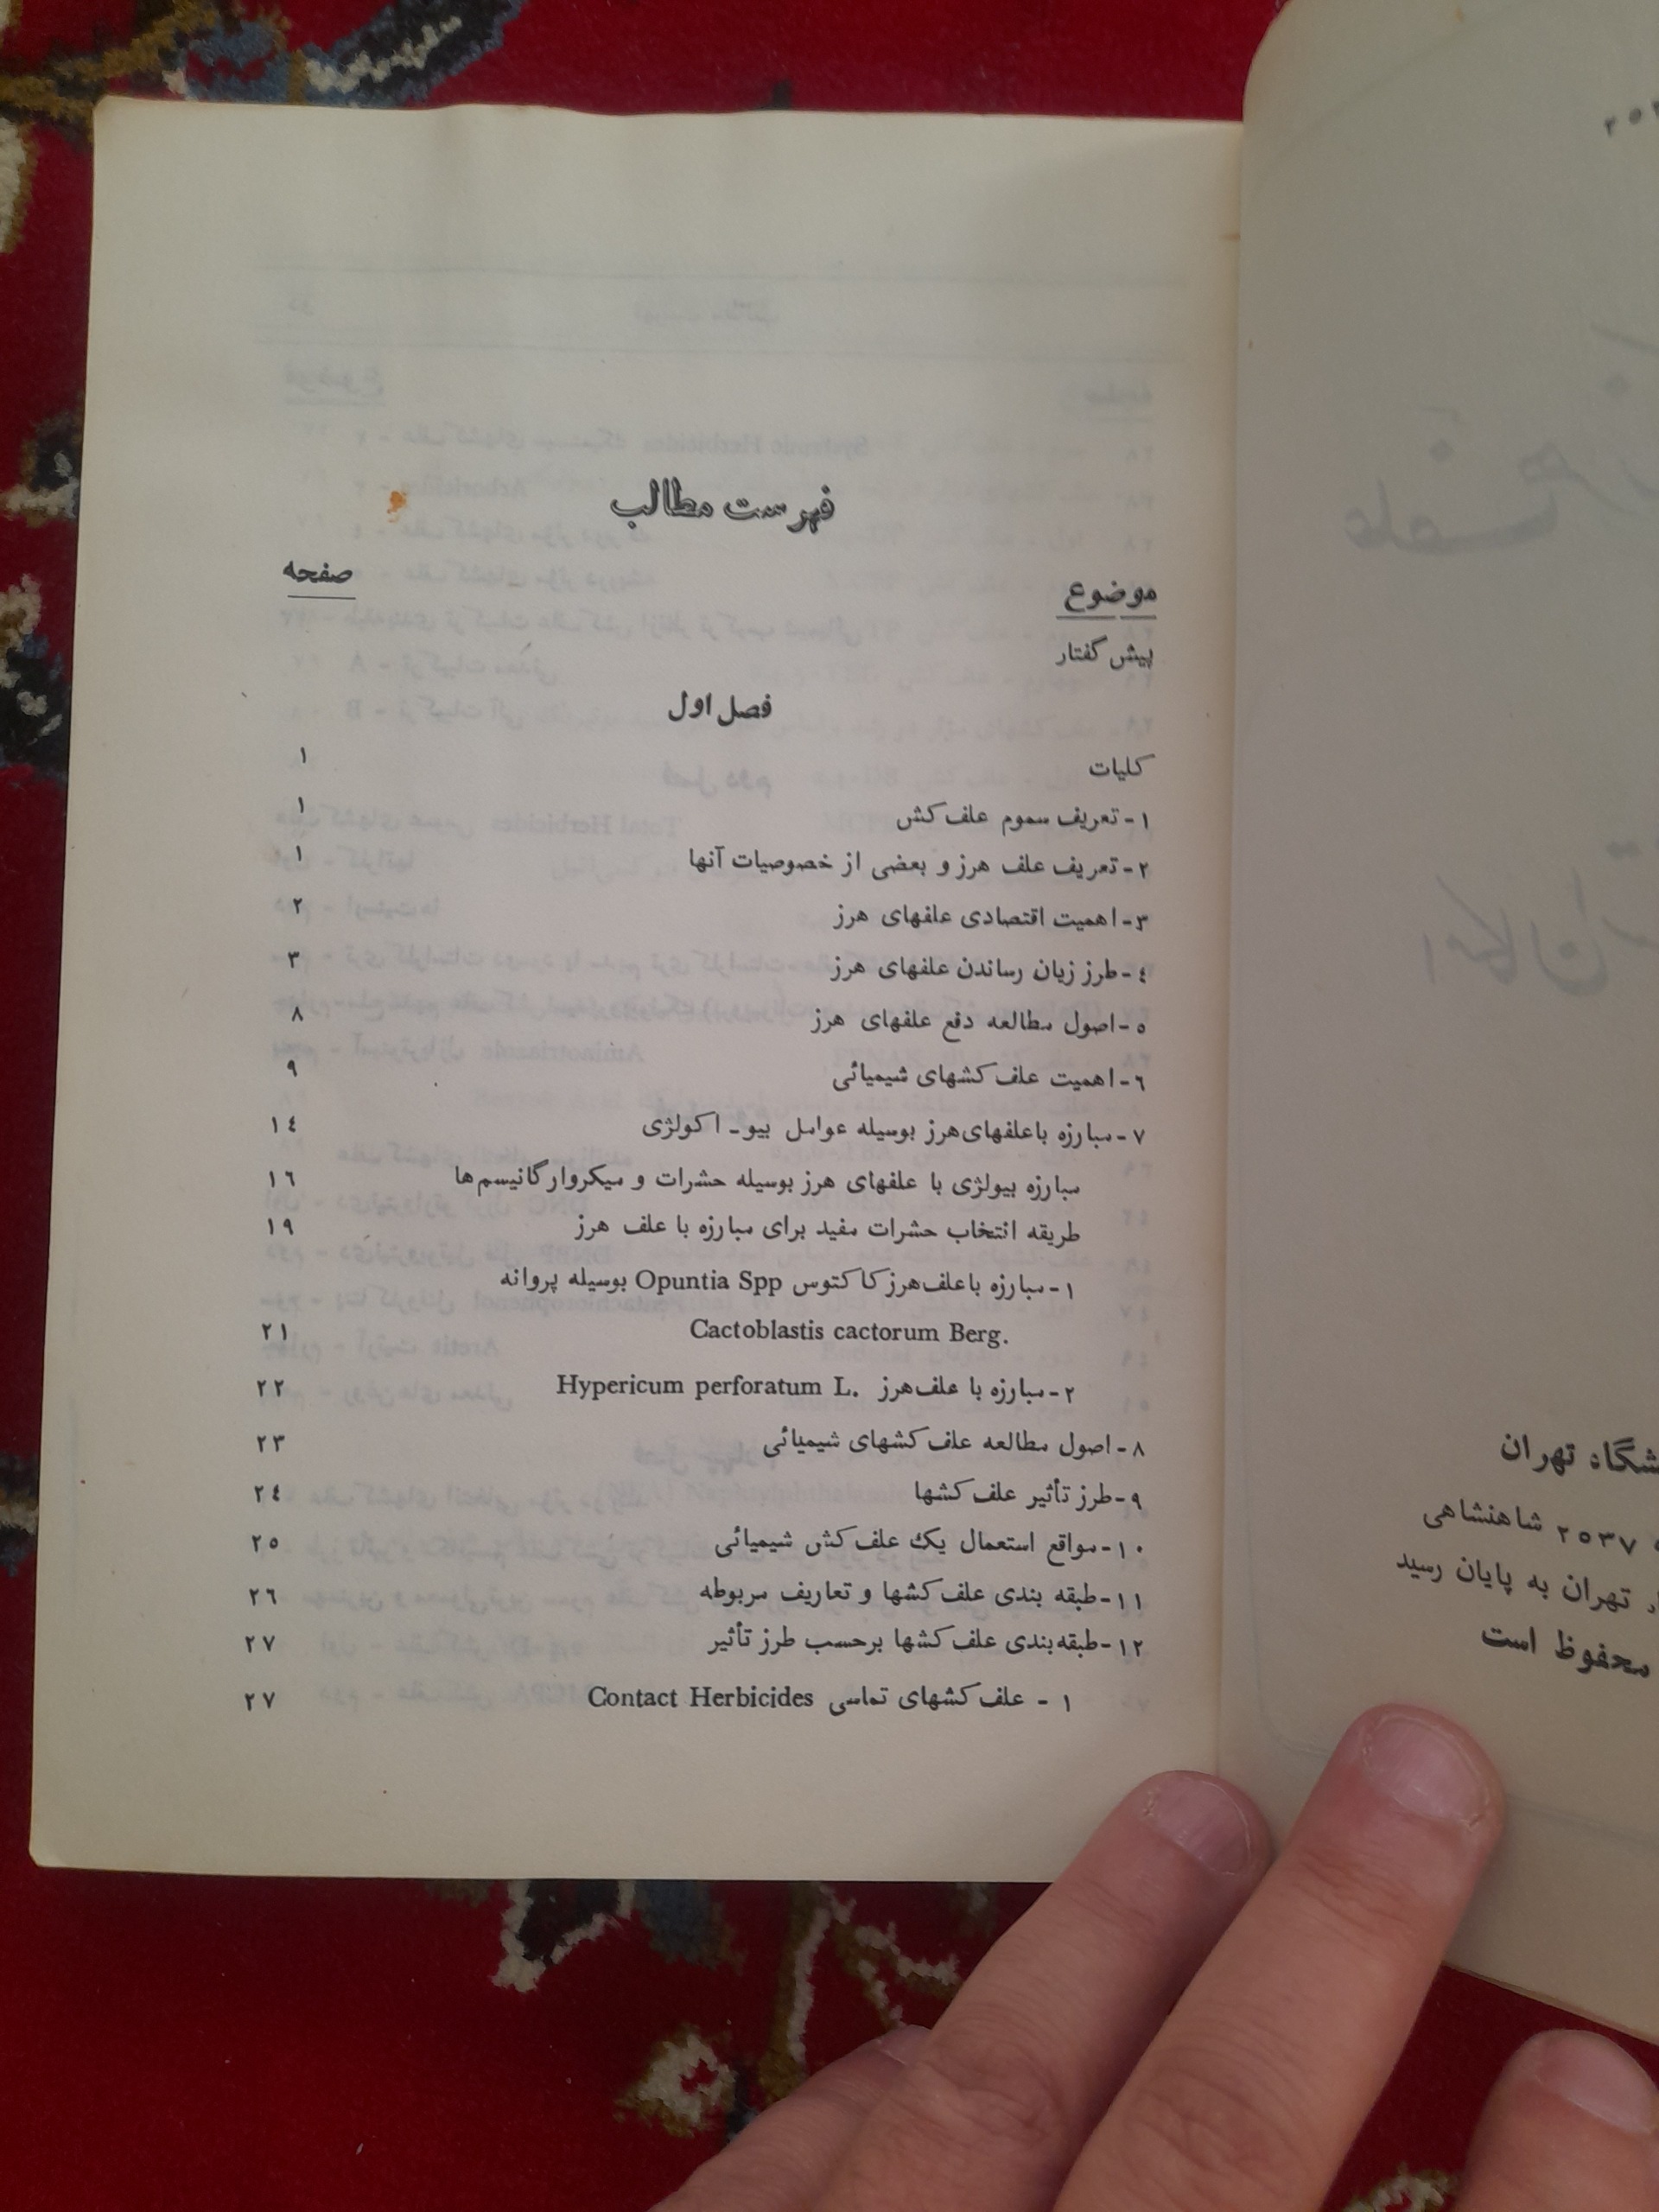 فهرست مطالب
موضوع صفحه
پیش گفتار
فصل اول
کلیات ۱
۱-تعریف سموم علف کش ۱
۲-تعریف علف هرز و بعضی از خصوصیات آنها ۱
۳-اهمیت اقتصادی علفهای هرز ۲
٤-طرز زیان رساندن علفهای هرز ۳
٥-اصول مطالعه دفع علفهای هرز ۸
٦-اهمیت علف کشهای شیمیائی ۹
۷-مبارزه باعلفهای هرز بوسیله عوامل بیو-اکولژی ۱٤
مبارزه بیولژی با علفهای هرز بوسیله حشرات و میکروارگانیسم ها ۱٦
طریقه انتخاب حشرات مفید برای مبارزه با علف هرز ۱۹
۱-مبارزه باعلف هرز کاکتوس Opuntia Spp بوسیله پروانه
Cactoblastis cactorum Berg. ۲۱
۲-مبارزه با علف هرز Hypericum perforatum L. ۲۲
۸-اصول مطالعه علف کشهای شیمیائی ۲۳
۹-طرز تأثیر علف کشها ۲٤
۱۰-مواقع استعمال یک علف کش شیمیائی ۲٥
۱۱-طبقه بندی علف کشها و تعاریف مربوطه ۲٦
۱۲-طبقه بندی علف کشها برحسب طرز تأثیر ۲۷
۱ - علف کشهای تماسی Contact Herbicides ۲۷
تهران
۲٥۳۷ شاهنشاهی
تهران به پایان رسید
محفوظ است